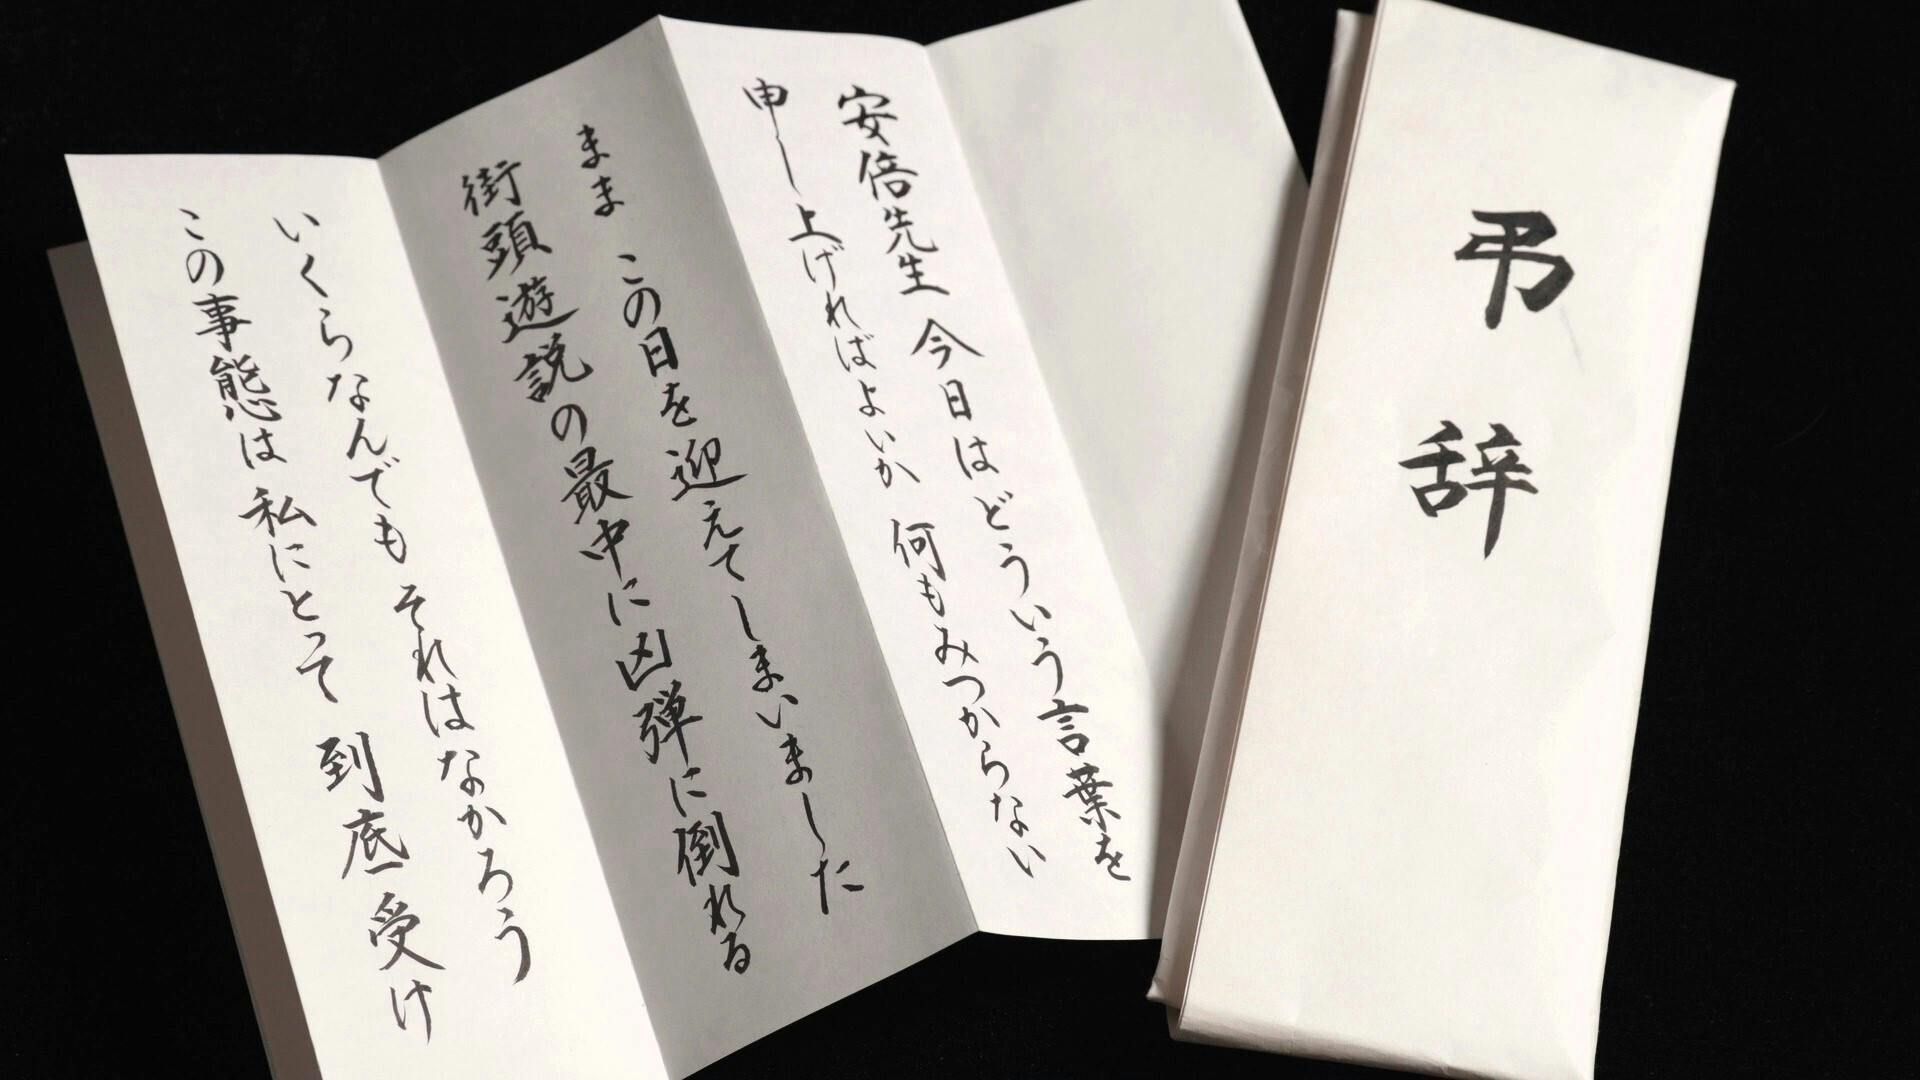 弔辞
安倍先生 今日はどういう言葉を
申し上げればよいか 何もみつからない
まま この日を迎えてしまいました
街頭遊説の最中に凶弾に倒れる
いくらなんでも それはなかろう
この事態は 私にとって 到底受け